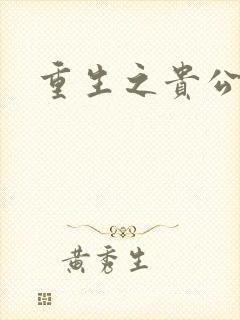 重生之貴公
黃秀生